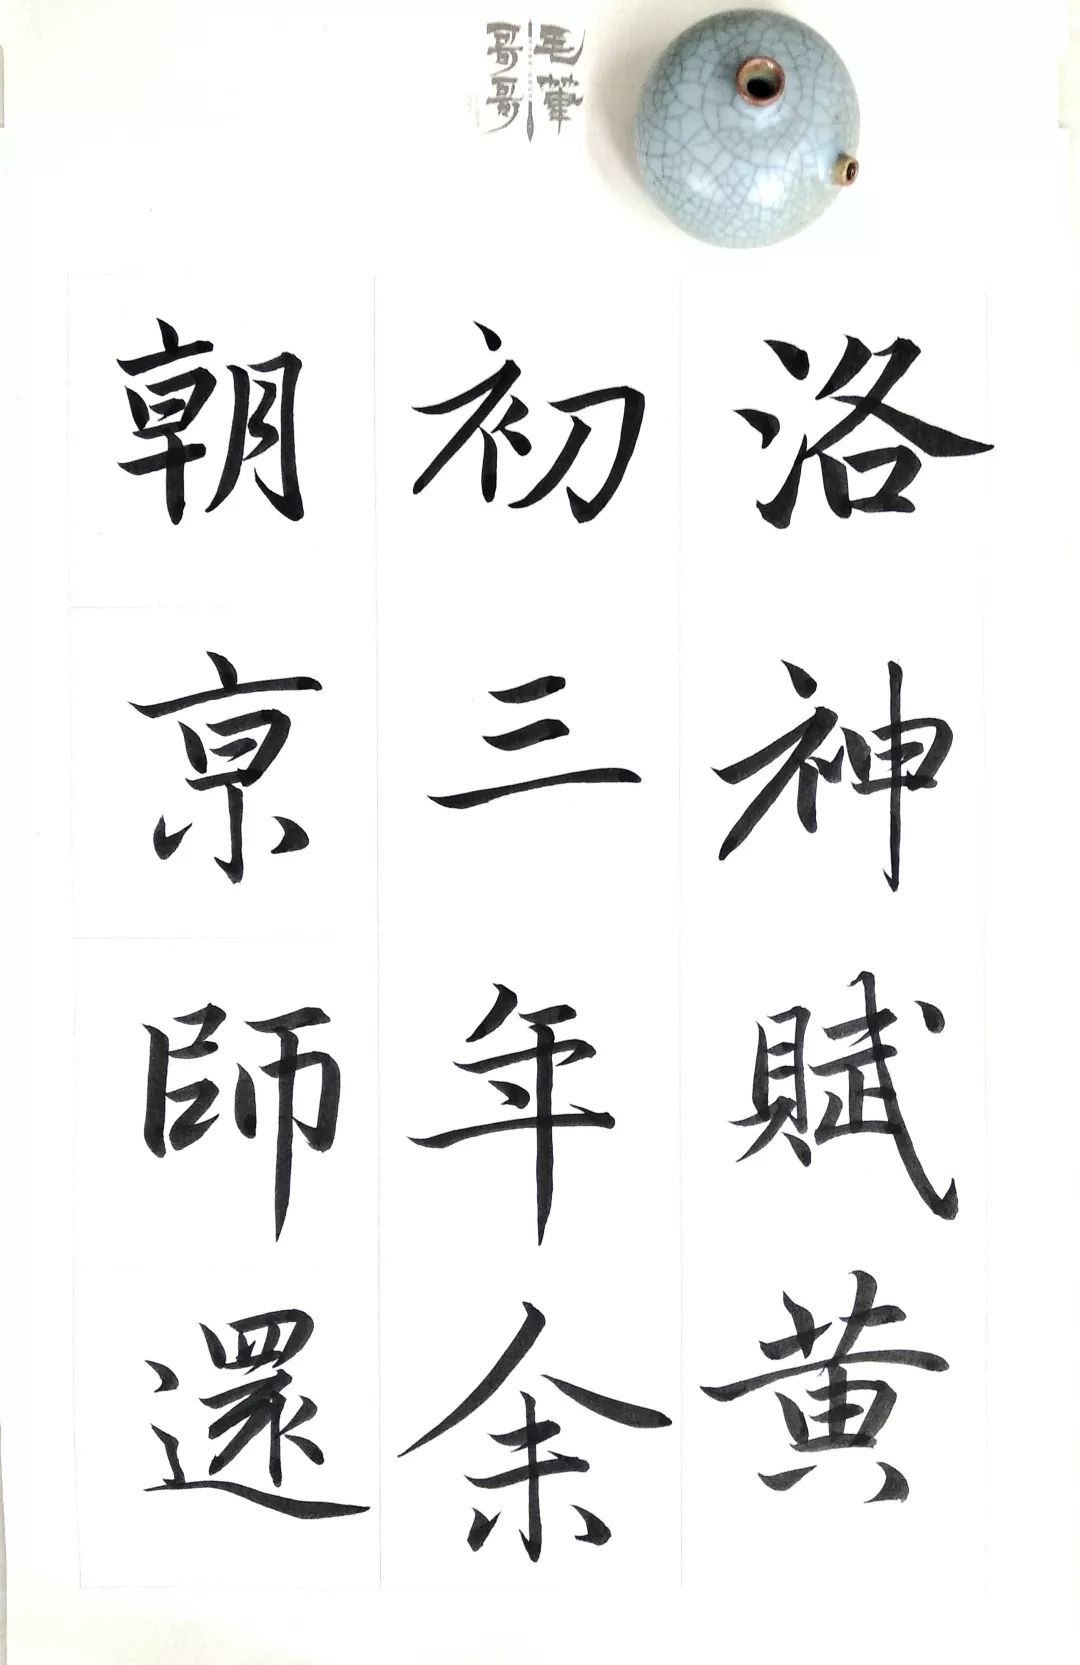 毛筆
哥哥
洛神賦黄
初三年余
朝京師還